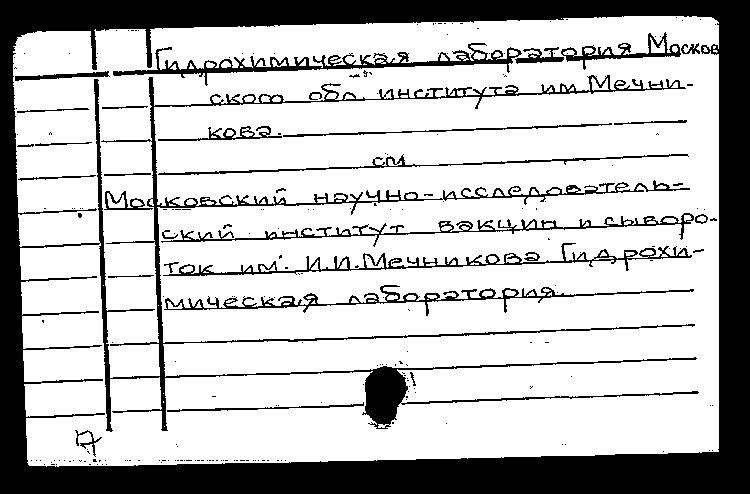 Гидрохимическая лаборатория Москов
ского обл. института им Мечни-
кова.
см
Московский научно-исследователь-
ский институт вакцин и сыворо-
ток им. И.И.Мечникова Гидрохи-
мическая лаборатория.